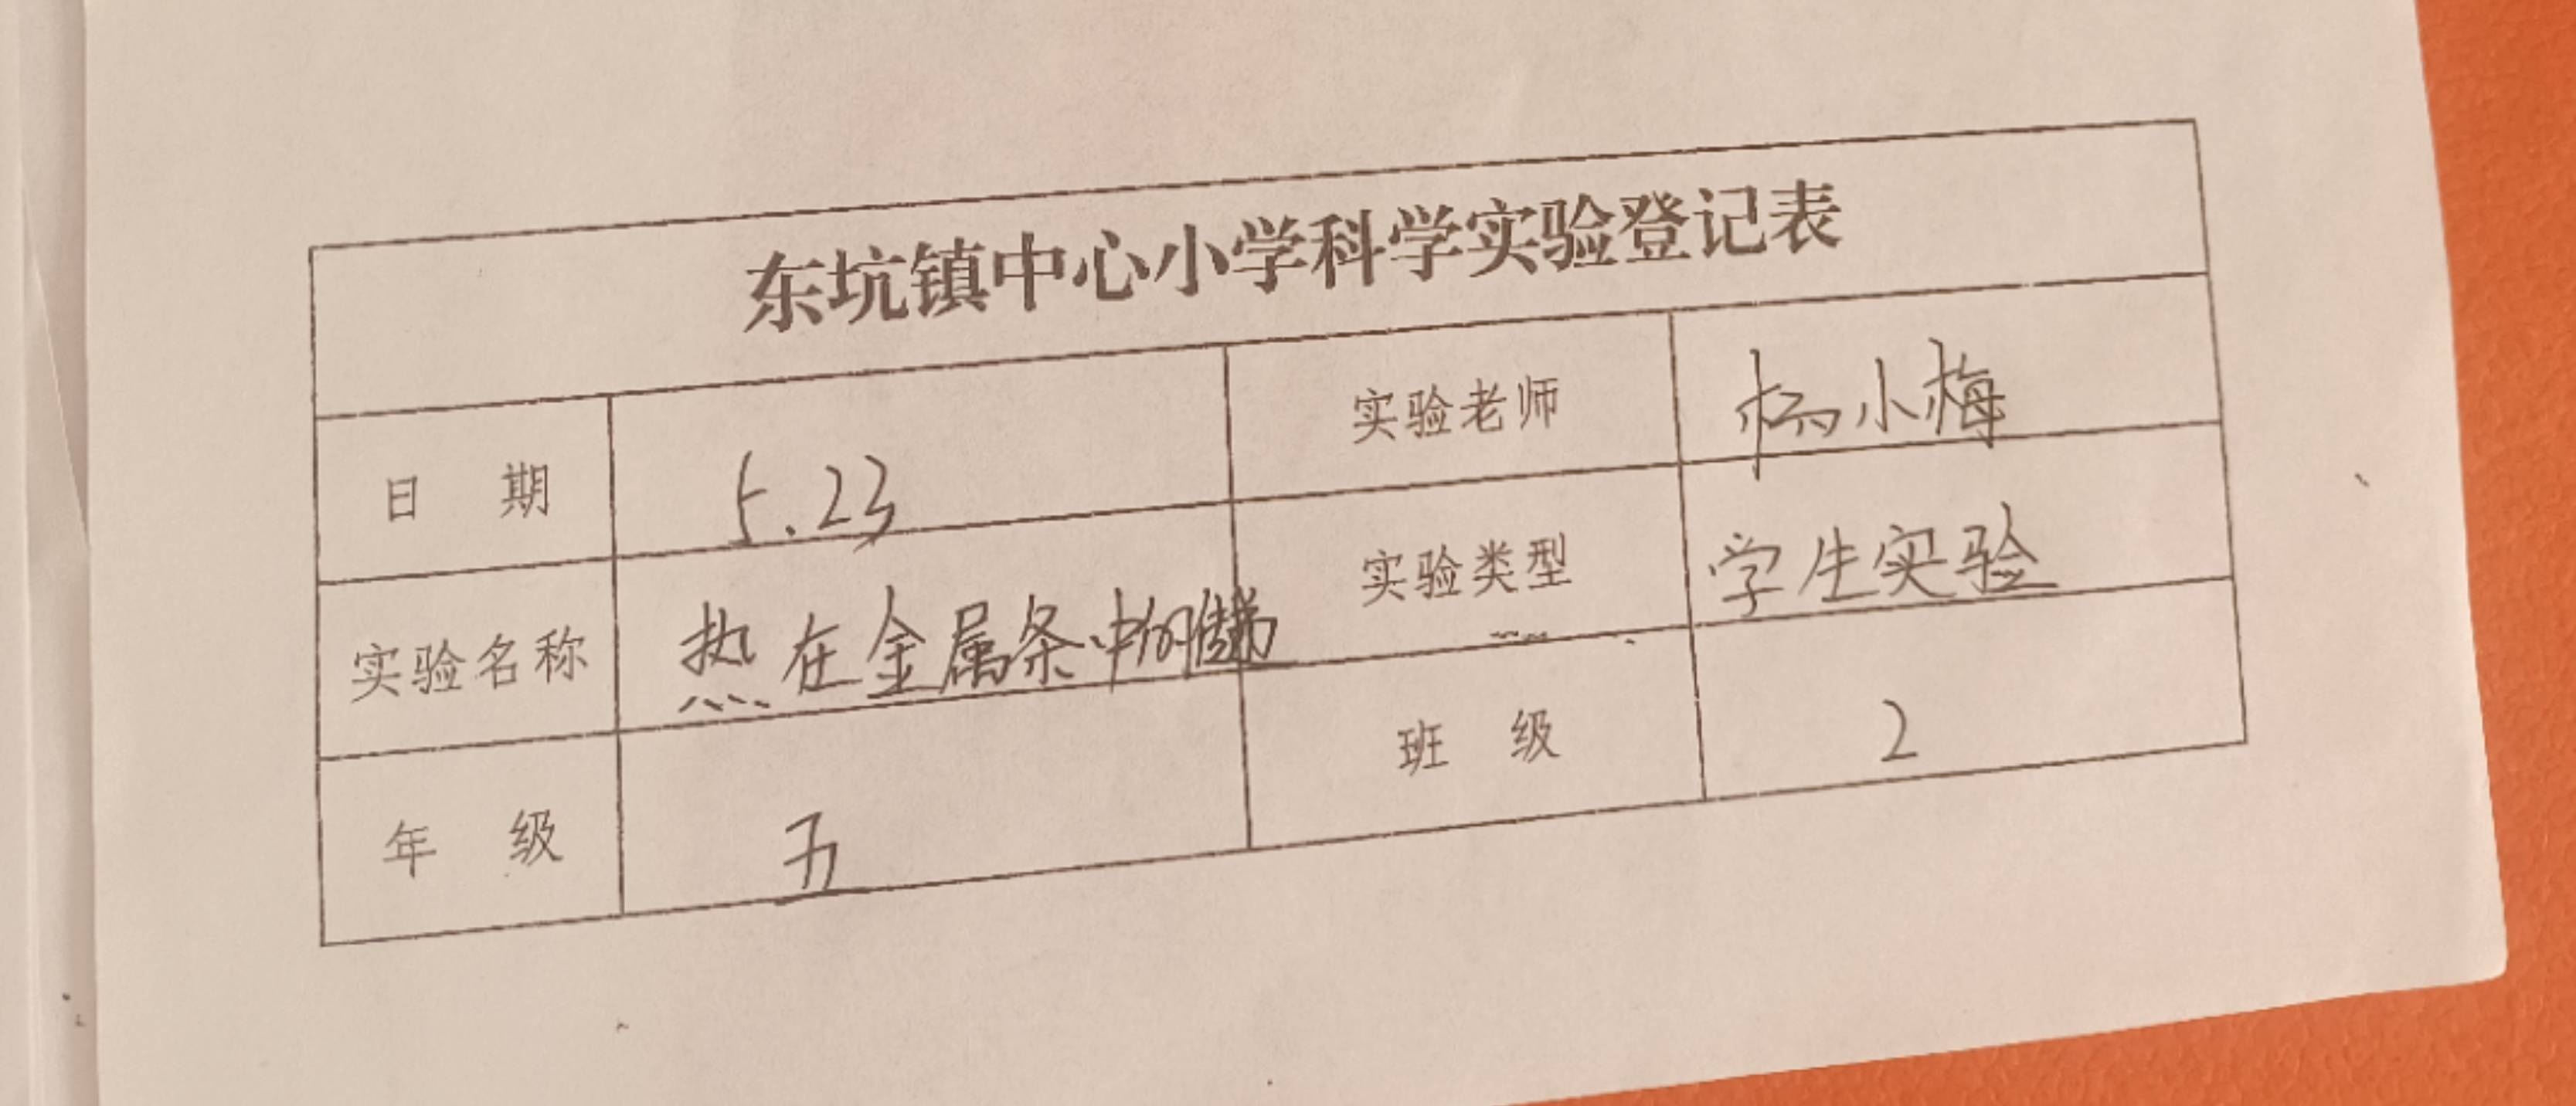 东坑镇中心小学科学实验登记表
日 期 5.23 实验老师 杨小梅
实验名称 热在金属条中的传递 实验类型 学生实验
年 级 五 班 级 2